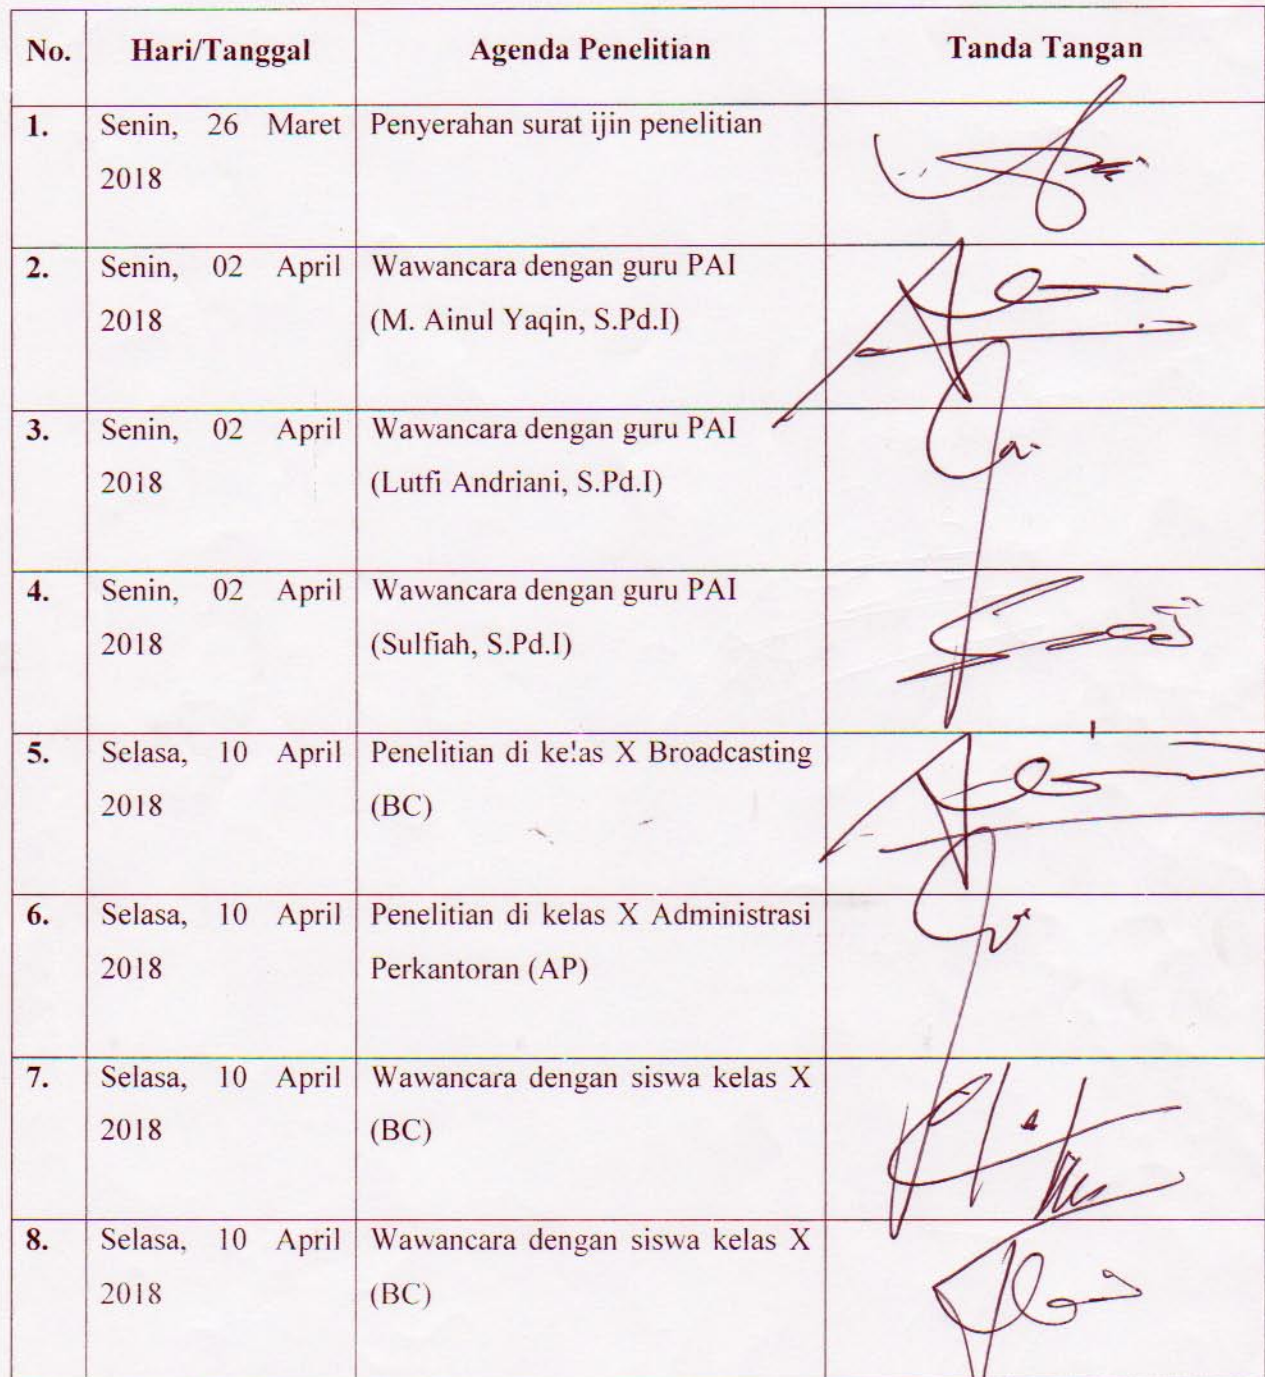 No. Hari/Tanggal Agenda Penelitian Tanda Tangan
1. Senin, 26 Maret Penyerahan surat ijin penelitian
2018
2. Senin, 02 April Wawancara dengan guru PAI
2018 (M. Ainul Yaqin, S.Pd.I)
3. Senin, 02 April Wawancara dengan guru PAI
2018 (Lutfi Andriani, S.Pd.I)
4. Senin, 02 April Wawancara dengan guru PAI
2018 (Sulfiah, S.Pd.I)
5. Selasa, 10 April Penelitian di kelas X Broadcasting
2018 (BC)
6. Selasa, 10 April Penelitian di kelas X Administrasi
2018 Perkantoran (AP)
7. Selasa, 10 April Wawancara dengan siswa kelas X
2018 (BC)
8. Selasa, 10 April Wawancara dengan siswa kelas X
2018 (BC)